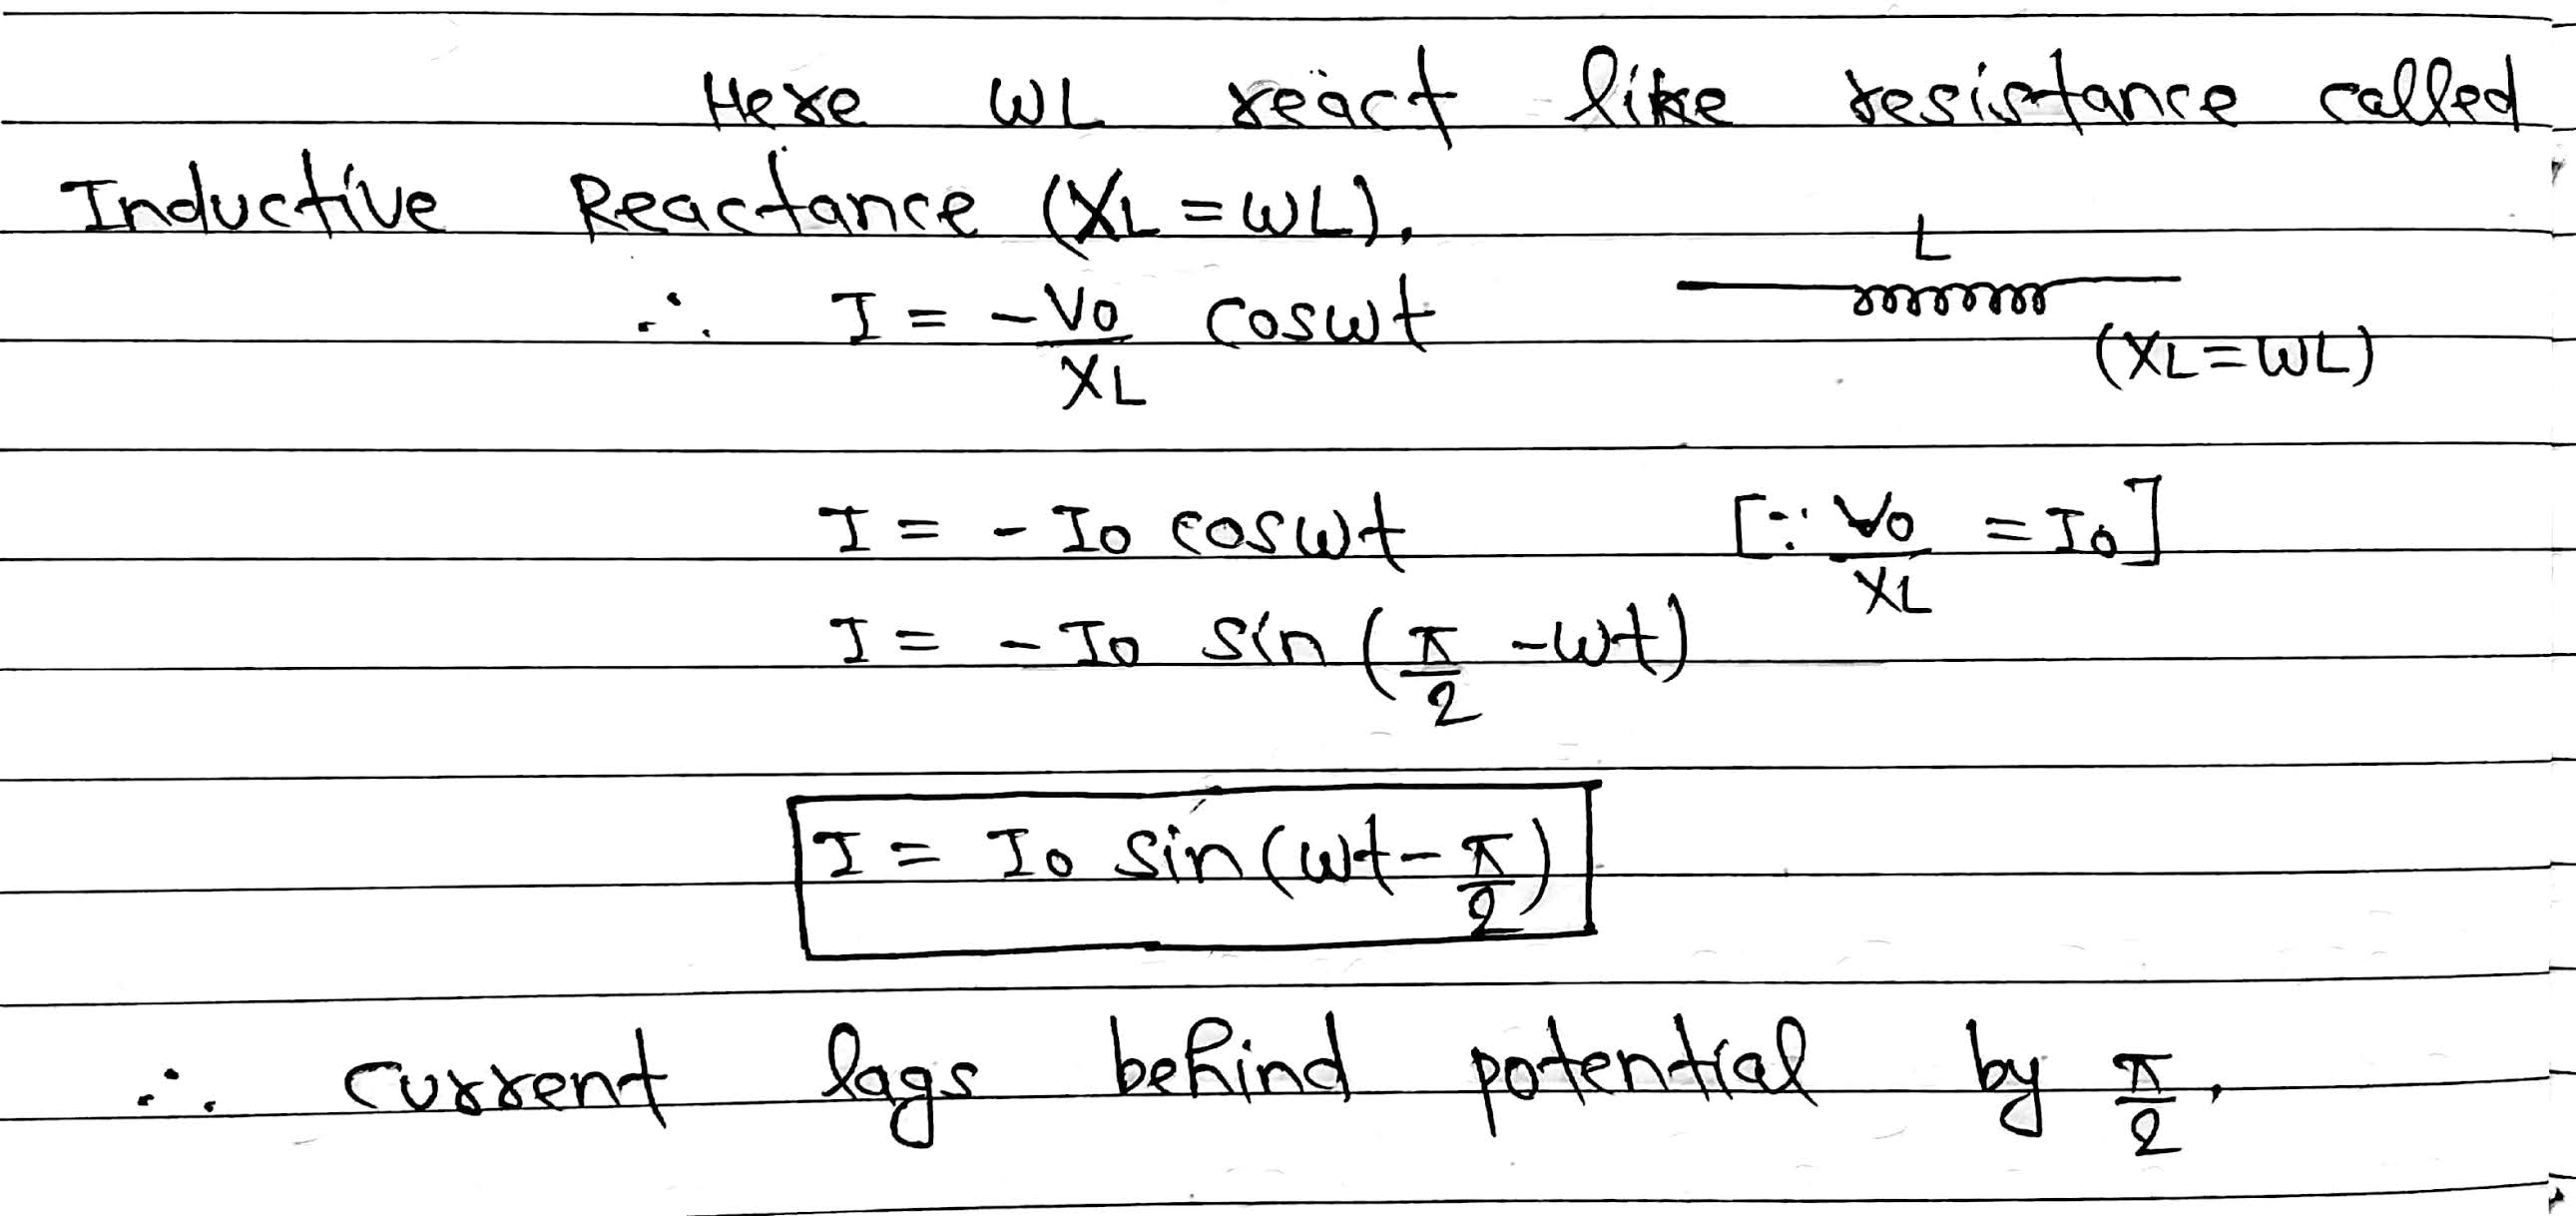 Here ωL react like resistance called
Inductive Reactance (XL = ωL).
L
∴ I = -V0/XL cosωt
(XL = ωL)
I = - I0 cosωt [∵ V0/XL = I0]
I = - I0 sin (π/2 - ωt)
I = I0 sin (ωt - π/2)
∴ current lags behind potential by π/2.